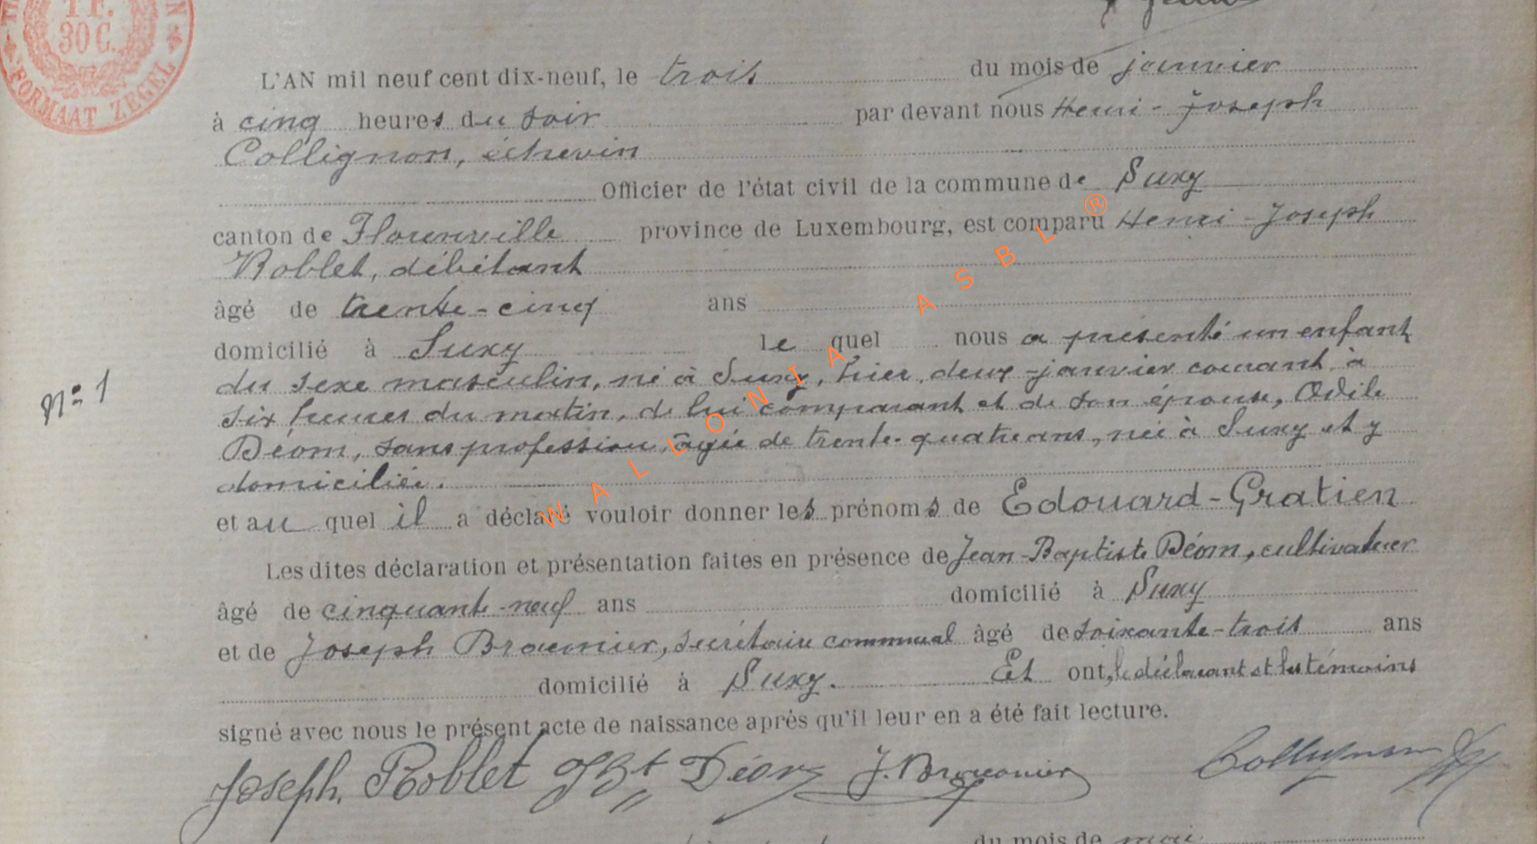 1 F.
30 C.
FORMAAT ZEGEL
L'AN mil neuf cent dix-neuf, le trois du mois de janvier
à cinq heures du soir par devant nous Henri-Joseph
Collignon, échevin
Officier de l'état civil de la commune de Suxy
canton de Florenville province de Luxembourg, est comparu Henri-Joseph
Roblet, débitant
âgé de trente-cinq ans
domicilié à Suxy le quel nous a présenté un enfant
du sexe masculin, né à Suxy, hier, deux janvier courant, à
N° 1
six heures du matin, de lui comparant et de son épouse, Odile
Déom, sans profession, âgée de trente-quatre ans, née à Suxy et y
domiciliée.
et au quel il a déclaré vouloir donner les prénoms de Edouard-Gratien
Les dites déclaration et présentation faites en présence de Jean-Baptiste Déom, cultivateur
âgé de cinquante-neuf ans domicilié à Suxy
et de Joseph Braconnier, secrétaire communal âgé de soixante-trois ans
domicilié à Suxy. Et ont, le déclarant et les témoins
signé avec nous le présent acte de naissance après qu'il leur en a été fait lecture.
Joseph Roblet JBt Déom J. Braconnier Collignon HJ
du mois de mai
WALLONIA ASBL ®